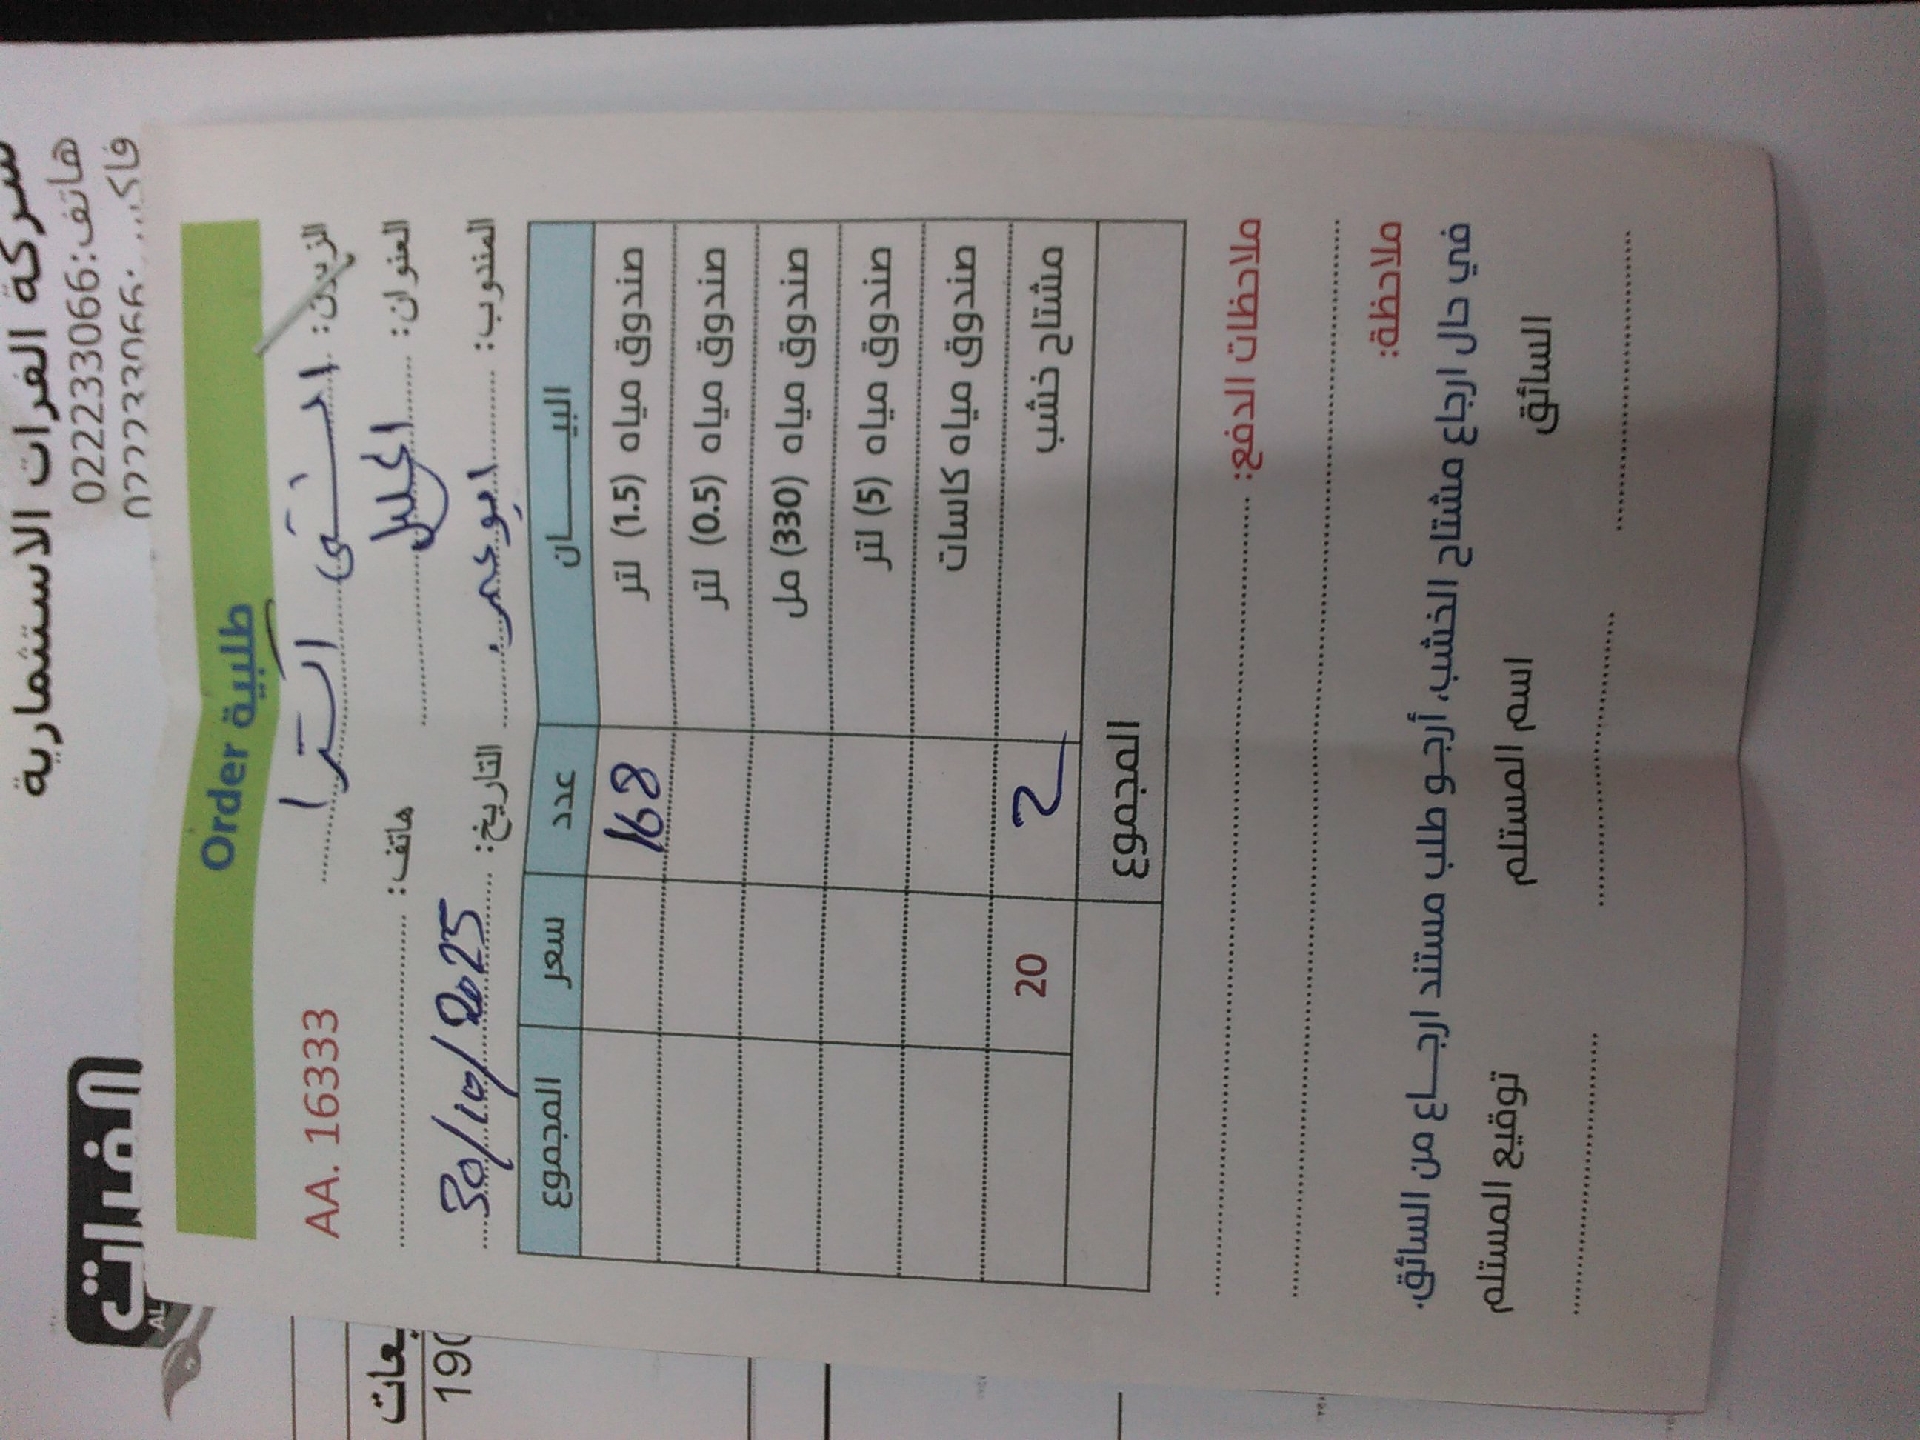 شركة الفرات الاستثمارية
هاتف: 022233066
الفرات
طلبية Order
AA. 16333
الزبون: المستشفى
العنوان: الخليل
هاتف:
المندوب: ابو عمر
التاريخ: 30/10/2025
البيـــــــان عدد سعر المجموع
صندوق مياه (1.5) لتر 168
صندوق مياه (0.5) لتر
صندوق مياه (330) مل
صندوق مياه (5) لتر
صندوق مياه كاسات
مشتاح خشب 2 20
المجموع
ملاحظات الدفع:
ملاحظة:
في حال ارجاع مشتاح الخشب، أرجو طلب مستند ارجـــاع من السائق.
السائق اسم المستلم توقيع المستلم